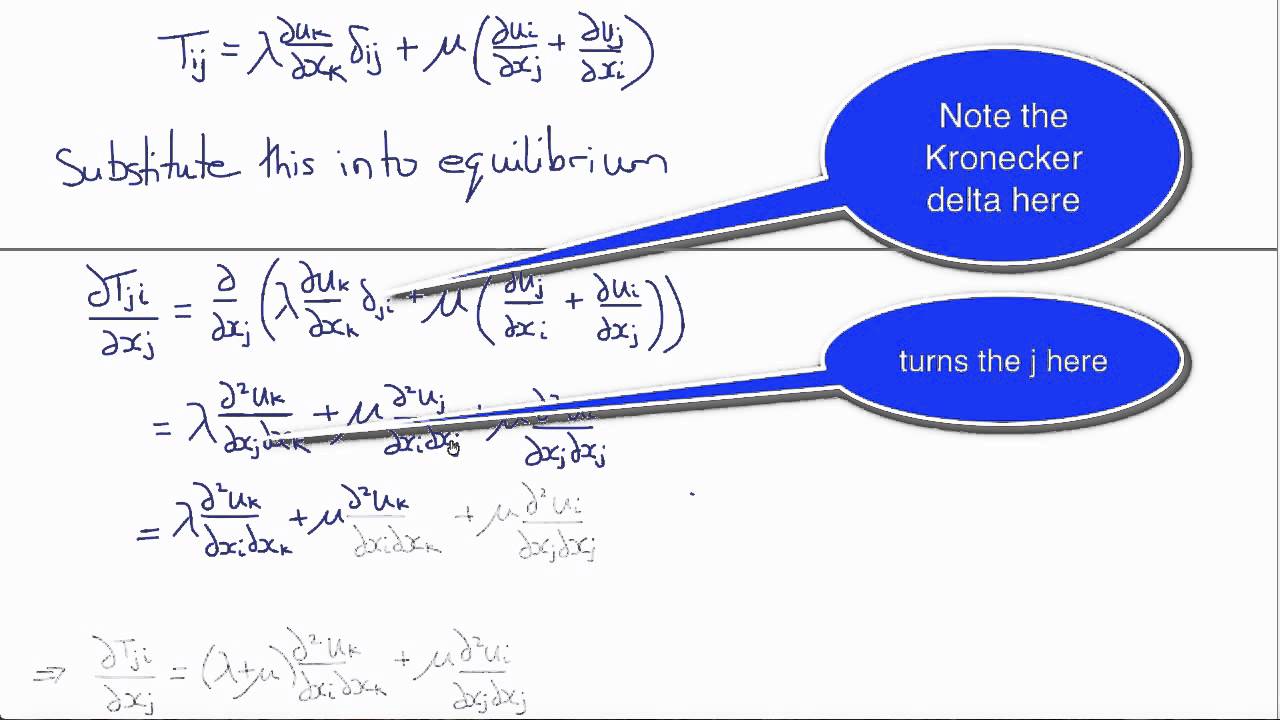 Tij = λ ∂uk/∂xk δij + μ(∂ui/∂xj + ∂uj/∂xi)
Substitute this into equilibrium
Note the
Kronecker
delta here
∂Tji/∂xj = ∂/∂xj (λ ∂uk/∂xk δji + μ(∂uj/∂xi + ∂ui/∂xj))
turns the j here
= λ ∂²uk/∂xj∂xk + μ ∂²uj/∂xi∂xj μ ∂² /∂xj∂xj
= λ ∂²uk/∂xi∂xk + μ ∂²uk/∂xi∂xk + μ ∂²ui/∂xj∂xj
⇒ ∂Tji/∂xj = (λ+μ) ∂²uk/∂xi∂xk + μ ∂²ui/∂xj∂xj